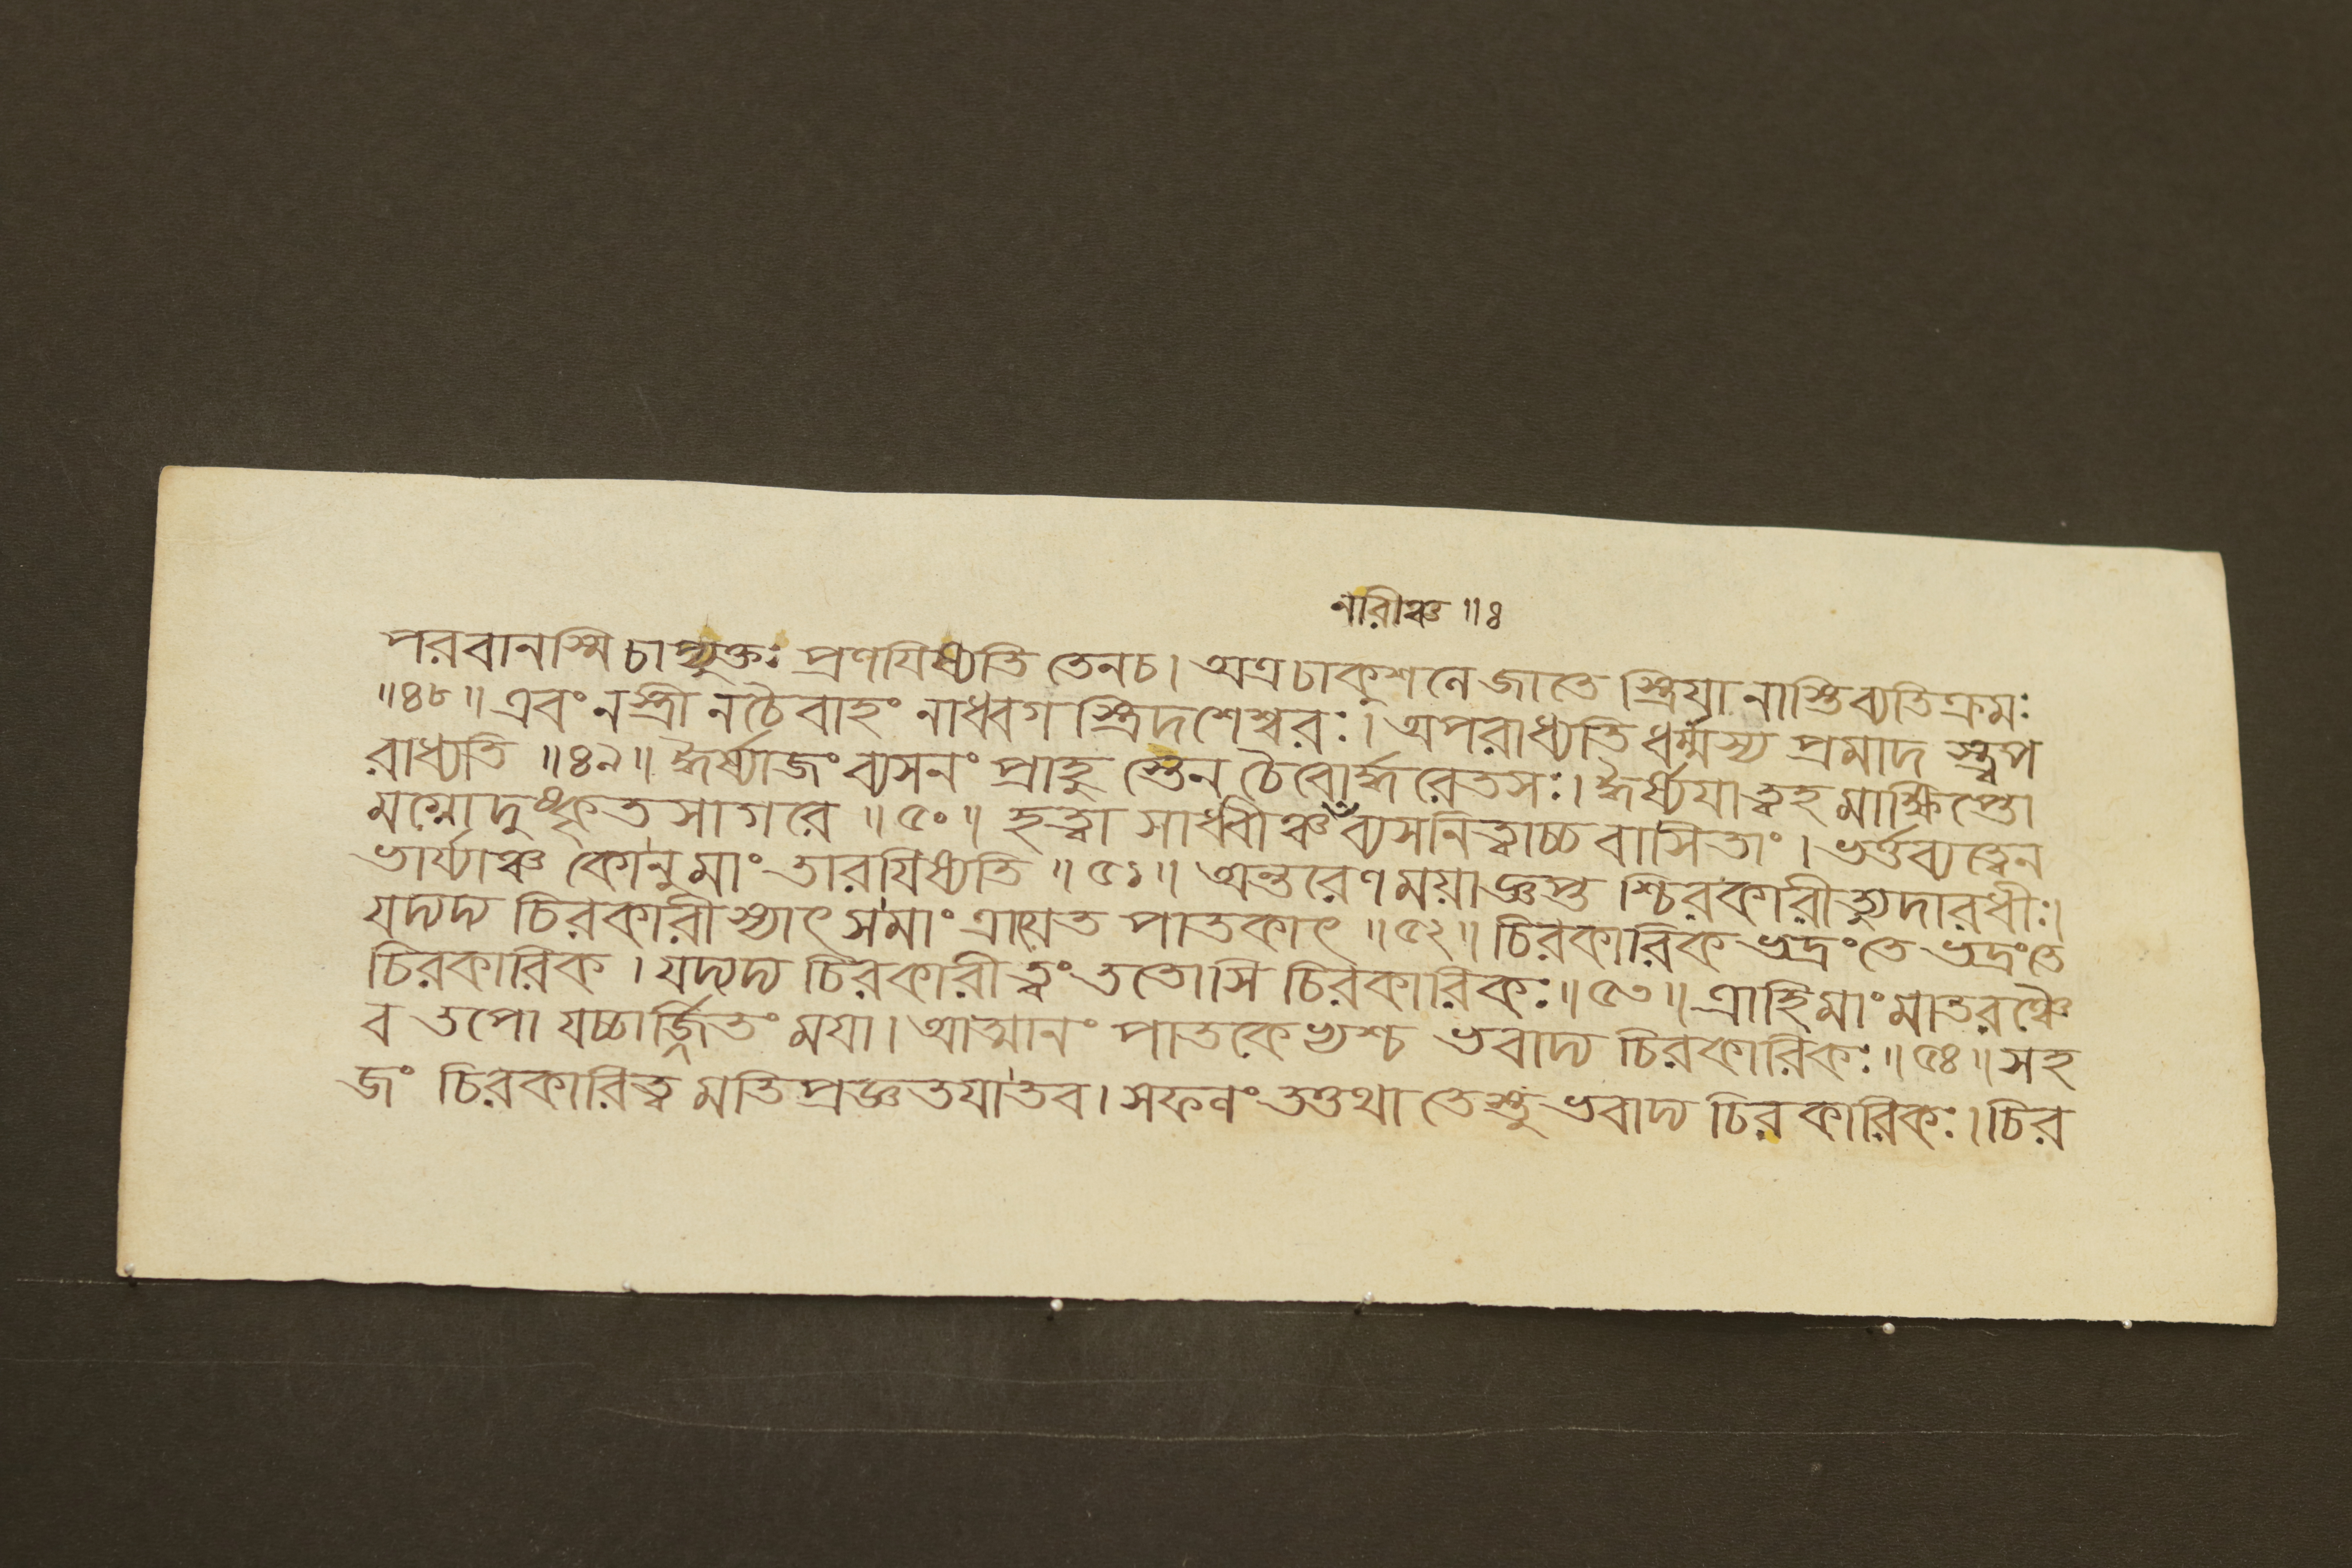 নারীঞ্চ ॥ঃ
পরবানস্মি চাপ্যুক্তঃ প্রণযিষ্যতি তেনচ। অত্রচাকুশনে জাতে স্ত্রিযা নাস্তিব্যতিক্রমঃ
॥৪৮॥ এবং নস্ত্রী নচৈবাহং নাধ্বগ স্ত্রিদশেশ্বরঃ। অপরাধ্যতি ধর্ম্মস্য প্রমাদ স্ত্বপ
রাধ্যতি ॥৪৯॥ ঈর্ষ্যাজং ব্যসনং প্রাহু স্তেন চৈবোর্দ্ধরেতসঃ। ঈর্ষ্যযাত্বহ মাক্ষিপ্তো
মগ্নোদুষ্কৃতসাগরে ॥৫০॥ হত্বা সাধ্বীঞ্চ ব্যসনিত্বাচ্চ বাসিতাং। ভর্ত্তব্যত্বেন
ভার্য্যাঞ্চ কোনুমাং তারযিষ্যতি ॥৫১॥ অন্তরেণময়াজ্ঞপ্ত শ্চিরকারীত্যুদারধীঃ।
যদ্যদ্য চিরকারীস্যাৎ সমাং ত্রায়েত পাতকাৎ ॥৫২॥ চিরকারিক ভদ্রংতে ভদ্রংতে
চিরকারিক। যদ্যদ্য চিরকারী ত্বং ততোসি চিরকারিকঃ॥৫৩॥ ত্রাহিমাংমাতরঞ্চৈ
ব তপো যচ্চার্জ্জিতং ময়া। আত্মানং পাতকেভ্যশ্চ ভবাদ্য চিরকারিকঃ॥৫৪॥ সহ
জং চিরকারিত্ব মতিপ্রজ্ঞতযাতব। সফলং তত্তথা তেস্তু ভবাদ্য চিরকারিকঃ। চির